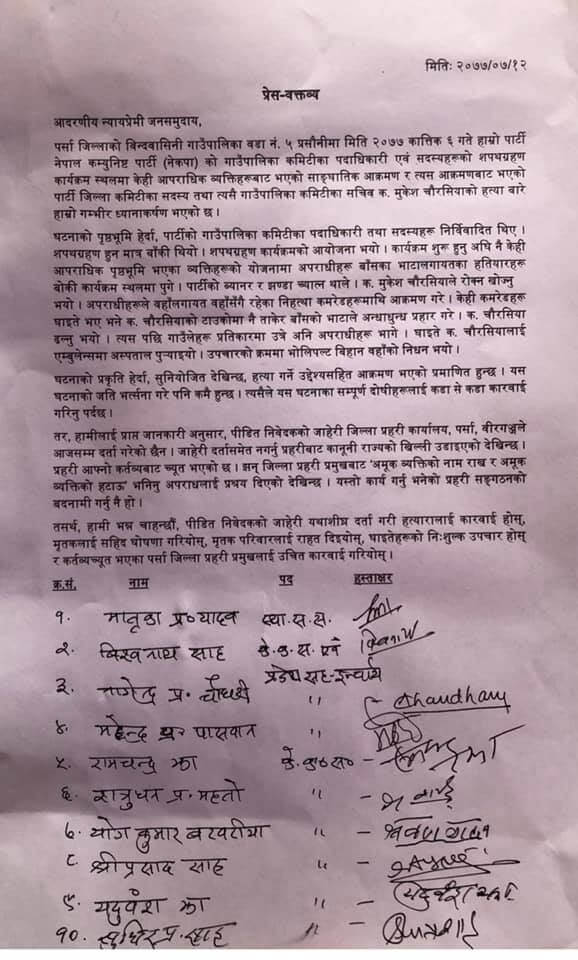 मितिः २०७७/०७/१२
प्रेस-वक्तव्य
आदरणीय न्यायप्रेमी जनसमुदाय,
पर्सा जिल्लाको बिन्दवासिनी गाउँपालिका वडा नं. ५ प्रसौनीमा मिति २०७७ कात्तिक ६ गते हाम्रो पार्टी
नेपाल कम्युनिष्ट पार्टी (नेकपा) को गाउँपालिका कमिटीका पदाधिकारी एवं सदस्यहरूको शपथग्रहण
कार्यक्रम स्थलमा केही आपराधिक व्यक्तिहरूबाट भएको साङ्घातिक आक्रमण र त्यस आक्रमणबाट भएको
पार्टी जिल्ला कमिटीका सदस्य तथा त्यसै गाउँपालिका कमिटीका सचिव क. मुकेश चौरसियाको हत्या बारे
हाम्रो गम्भीर ध्यानाकर्षण भएको छ ।
घटनाको पृष्ठभूमि हेर्दा, पार्टीको गाउँपालिका कमिटीका पदाधिकारी तथा सदस्यहरू निर्विवादित थिए ।
शपथग्रहण हुन मात्र बाँकी थियो । शपथग्रहण कार्यक्रमको आयोजना भयो । कार्यक्रम शुरू हुनु अघि नै केही
आपराधिक पृष्ठभूमि भएका व्यक्तिहरूको योजनामा अपराधीहरू बाँसका भाटालगायतका हतियारहरू
बोकी कार्यक्रम स्थलमा पुगे । पार्टीको ब्यानर र झण्डा च्यात्न थाले । क. मुकेश चौरसियाले रोक्न खोज्नु
भयो । अपराधीहरूले वहाँलगायत वहाँसँगै रहेका निहत्था कमरेडहरूमाथि आक्रमण गरे । केही कमरेडहरू
घाइते भए भने क. चौरसियाको टाउकोमा नै ताकेर बाँसको भाटाले अन्धाधुन्ध प्रहार गरे । क. चौरसिया
ढल्नु भयो । त्यस पछि गाउँलेहरू प्रतिकारमा उत्रे अनि अपराधीहरू भागे । घाइते क. चौरसियालाई
एम्बुलेन्समा अस्पताल पुऱ्याइयो । उपचारको क्रममा भोलिपल्ट बिहान वहाँको निधन भयो ।
घटनाको प्रकृति हेर्दा, सुनियोजित देखिन्छ, हत्या गर्ने उद्देश्यसहित आक्रमण भएको प्रमाणित हुन्छ । यस
घटनाको जति भर्त्सना गरे पनि कमै हुन्छ । त्यसैले यस घटनाका सम्पूर्ण दोषीहरूलाई कडा से कडा कारवाई
गरिनु पर्दछ ।
तर, हामीलाई प्राप्त जानकारी अनुसार, पीडित निवेदकको जाहेरी जिल्ला प्रहरी कार्यालय, पर्सा, वीरगञ्जले
आजसम्म दर्ता गरेको छैन । जाहेरी दर्तासमेत नगर्नु प्रहरीबाट कानूनी राज्यको खिल्ली उडाइएको देखिन्छ ।
प्रहरी आफ्नो कर्तव्यबाट च्यूत भएको छ । झन् जिल्ला प्रहरी प्रमुखबाट 'अमूक व्यक्तिको नाम राख र अमूक
व्यक्तिको हटाऊ' भनिनु अपराधलाई प्रश्रय दिएको देखिन्छ । यस्तो कार्य गर्नु भनेको प्रहरी सङ्गठनको
बदनामी गर्नु नै हो ।
तसर्थ, हामी भन्न चाहन्छौं, पीडित निवेदकको जाहेरी यथाशीघ्र दर्ता गरी हत्यारालाई कारवाई होस्,
मृतकलाई सहिद घोषणा गरियोस्, मृतक परिवारलाई राहत दिइयोस्, घाइतेहरूको निःशुल्क उपचार होस्
र कर्तव्यच्यूत भएका पर्सा जिल्ला प्रहरी प्रमुखलाई उचित कारवाई गरियोस् ।
क्र.सं. नाम पद हस्ताक्षर
१. मातृका प्र॰ यादव स्था.स.स.
२. विश्वनाथ साह के.क.स. एवं
प्रदेश सह-इन्चार्ज
३. नागेन्द्र प्र. चौधरी " Chaudhary
४. महेन्द्र प्र. पासवान "
५. रामचन्द्र झा के.क॰स॰
६. शत्रुधन प्र. महतो "
७. योग कुमार बरवटीया "
८. श्रीप्रसाद साह "
९. यदुवंश झा " यदुवंश झा
१०. सुधिर प्र. साह "